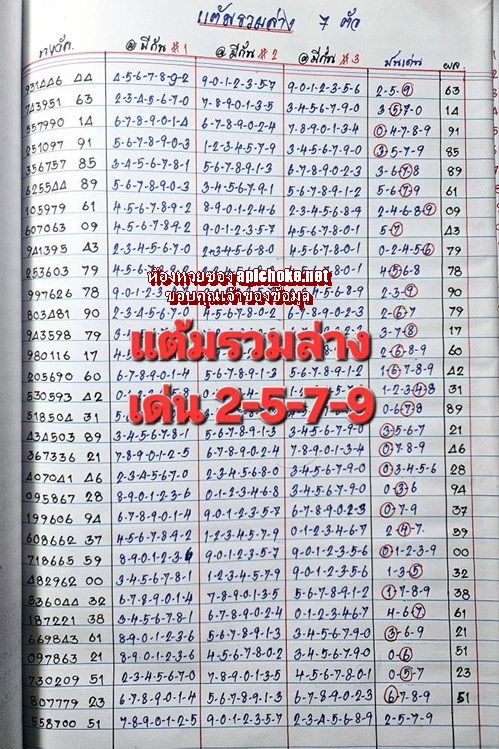 แต้มรวมล่าง 7 ตัว
ทบวัด. @ มีกัน #1 @ มีกัน #2 @ มีกัน #3 เน้นเด่น ผล.
931446 44 4-5-6-7-8-9-2 9-0-1-2-3-5-7 9-0-1-2-3-5-6 2-5-9 63
743951 63 2-3-4-5-6-7-0 7-8-9-0-1-3-5 3-4-5-6-7-9-0 3-5-7-0 14
557990 14 6-7-8-9-0-1-4 6-7-8-9-0-2-4 7-8-9-0-1-3-4 0-4-7-8-9 91
251097 91 5-6-7-8-9-0-3 1-2-3-4-5-7-9 3-4-5-6-7-9-0 3-5-7-9 85
356757 85 3-4-5-6-7-8-1 5-6-7-8-9-1-3 5-6-7-8-9-1-2 3-6-7-8 89
625544 89 5-6-7-8-9-0-3 3-4-5-6-7-9-1 5-6-7-8-9-1-2 5-6-7-9 61
105979 61 4-5-6-7-8-9-2 8-9-0-1-2-4-6 2-3-4-5-6-8-9 2-4-6-8-9 09
607063 09 4-5-6-7-8-9-2 9-0-1-2-3-5-7 4-5-6-7-8-0-1 5-7 43
941395 43 2-3-4-5-6-7-0 2-3-4-5-6-8-0 4-5-6-7-8-0-1 0-2-4-5-6 79
253603 79 4-5-6-8 78
ห้องหวยซอง aplchoke.net
ขอบคุณเจ้าของข้อมูล
997626 78 2-3-9 90
803481 90 2-6-7 79
943598 79 3-7-8 17
แต้มรวมล่าง
980116 17 2-6-8-9 60
205690 60 6-7-8-9-0-1-4 5-6-7-8-9-1-3 1-6-7-8-9 42
เด่น 2-5-7-9
530593 42 1-2-3-4-8 31
518504 31 0-6-7-8 89
434503 89 3-4-5-6-7-8-1 5-6-7-8-9-1-3 3-4-5-6-7-9-0 3-5-6-7 21
367336 21 7-8-9-0-1-2-5 6-7-8-9-0-2-4 7-8-9-0-1-3-4 0-7-8-9 46
407041 46 2-3-4-5-6-7-0 2-3-4-5-6-8-0 3-4-5-6-7-9-0 0-3-4-5-6 28
095867 28 8-9-0-1-2-3-6 0-1-2-3-4-6-8 3-4-5-6-7-9-0 0-3-6 94
199606 94 6-7-8-9-0-1-4 9-0-1-2-3-5-7 6-7-8-9-0-2-3 0-7-9 37
608662 37 4-5-6-7-8-9-2 1-2-3-4-5-7-9 0-1-2-3-4-6-7 2-4-7. 59
718665 59 8-9-0-1-2-3-6 9-0-1-2-3-5-7 9-0-1-2-3-5-6 0-1-2-3-9 00
482962 00 3-4-5-6-7-8-1 1-2-3-4-5-7-9 9-0-1-2-3-5-6 1-3-5 32
536044 32 6-7-8-9-0-1-4 7-8-9-0-1-3-5 5-6-7-8-9-1-2 1-7-8-9 38
187221 38 3-4-5-6-7-8-1 6-7-8-9-0-2-4 0-1-2-3-4-6-7 4-6-7 61
669843 61 8-9-0-1-2-3-6 9-0-1-2-3-5-7 3-4-5-6-7-9-0 3-6-9 21
097863 21 8-9-0-1-2-3-6 4-5-6-7-8-0-2 3-4-5-6-7-9-0 0-6 51
730209 51 2-3-4-5-6-7-0 7-8-9-0-1-3-5 4-5-6-7-8-0-1 0-5-7 23
807779 23 6-7-8-9-0-1-4 5-6-7-8-9-1-3 6-7-8-9-0-2-3 6-7-8-9 51
558700 51 7-8-9-0-1-2-5 9-0-1-2-3-5-7 2-3-4-5-6-8-9 2-5-7-9